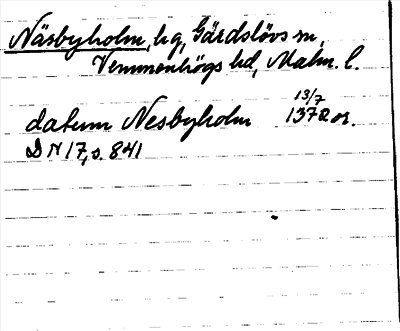 Näsbyholm, hg, Gärdslövs sn,
Vemmenhögs hd, Malm. l.
datum Nesbyholm 13/7 1372 or.
D N 17, s. 841